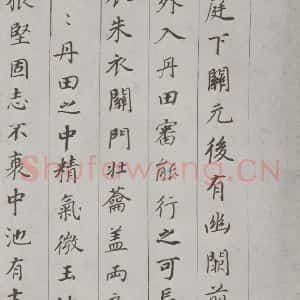 庭下關元後有幽闕前
外入丹田審能行之可長
衣朱衣關門壯蘥蓋兩
丹田之中精氣微玉池
根堅固志不衰中池有士
Shufawang.CN